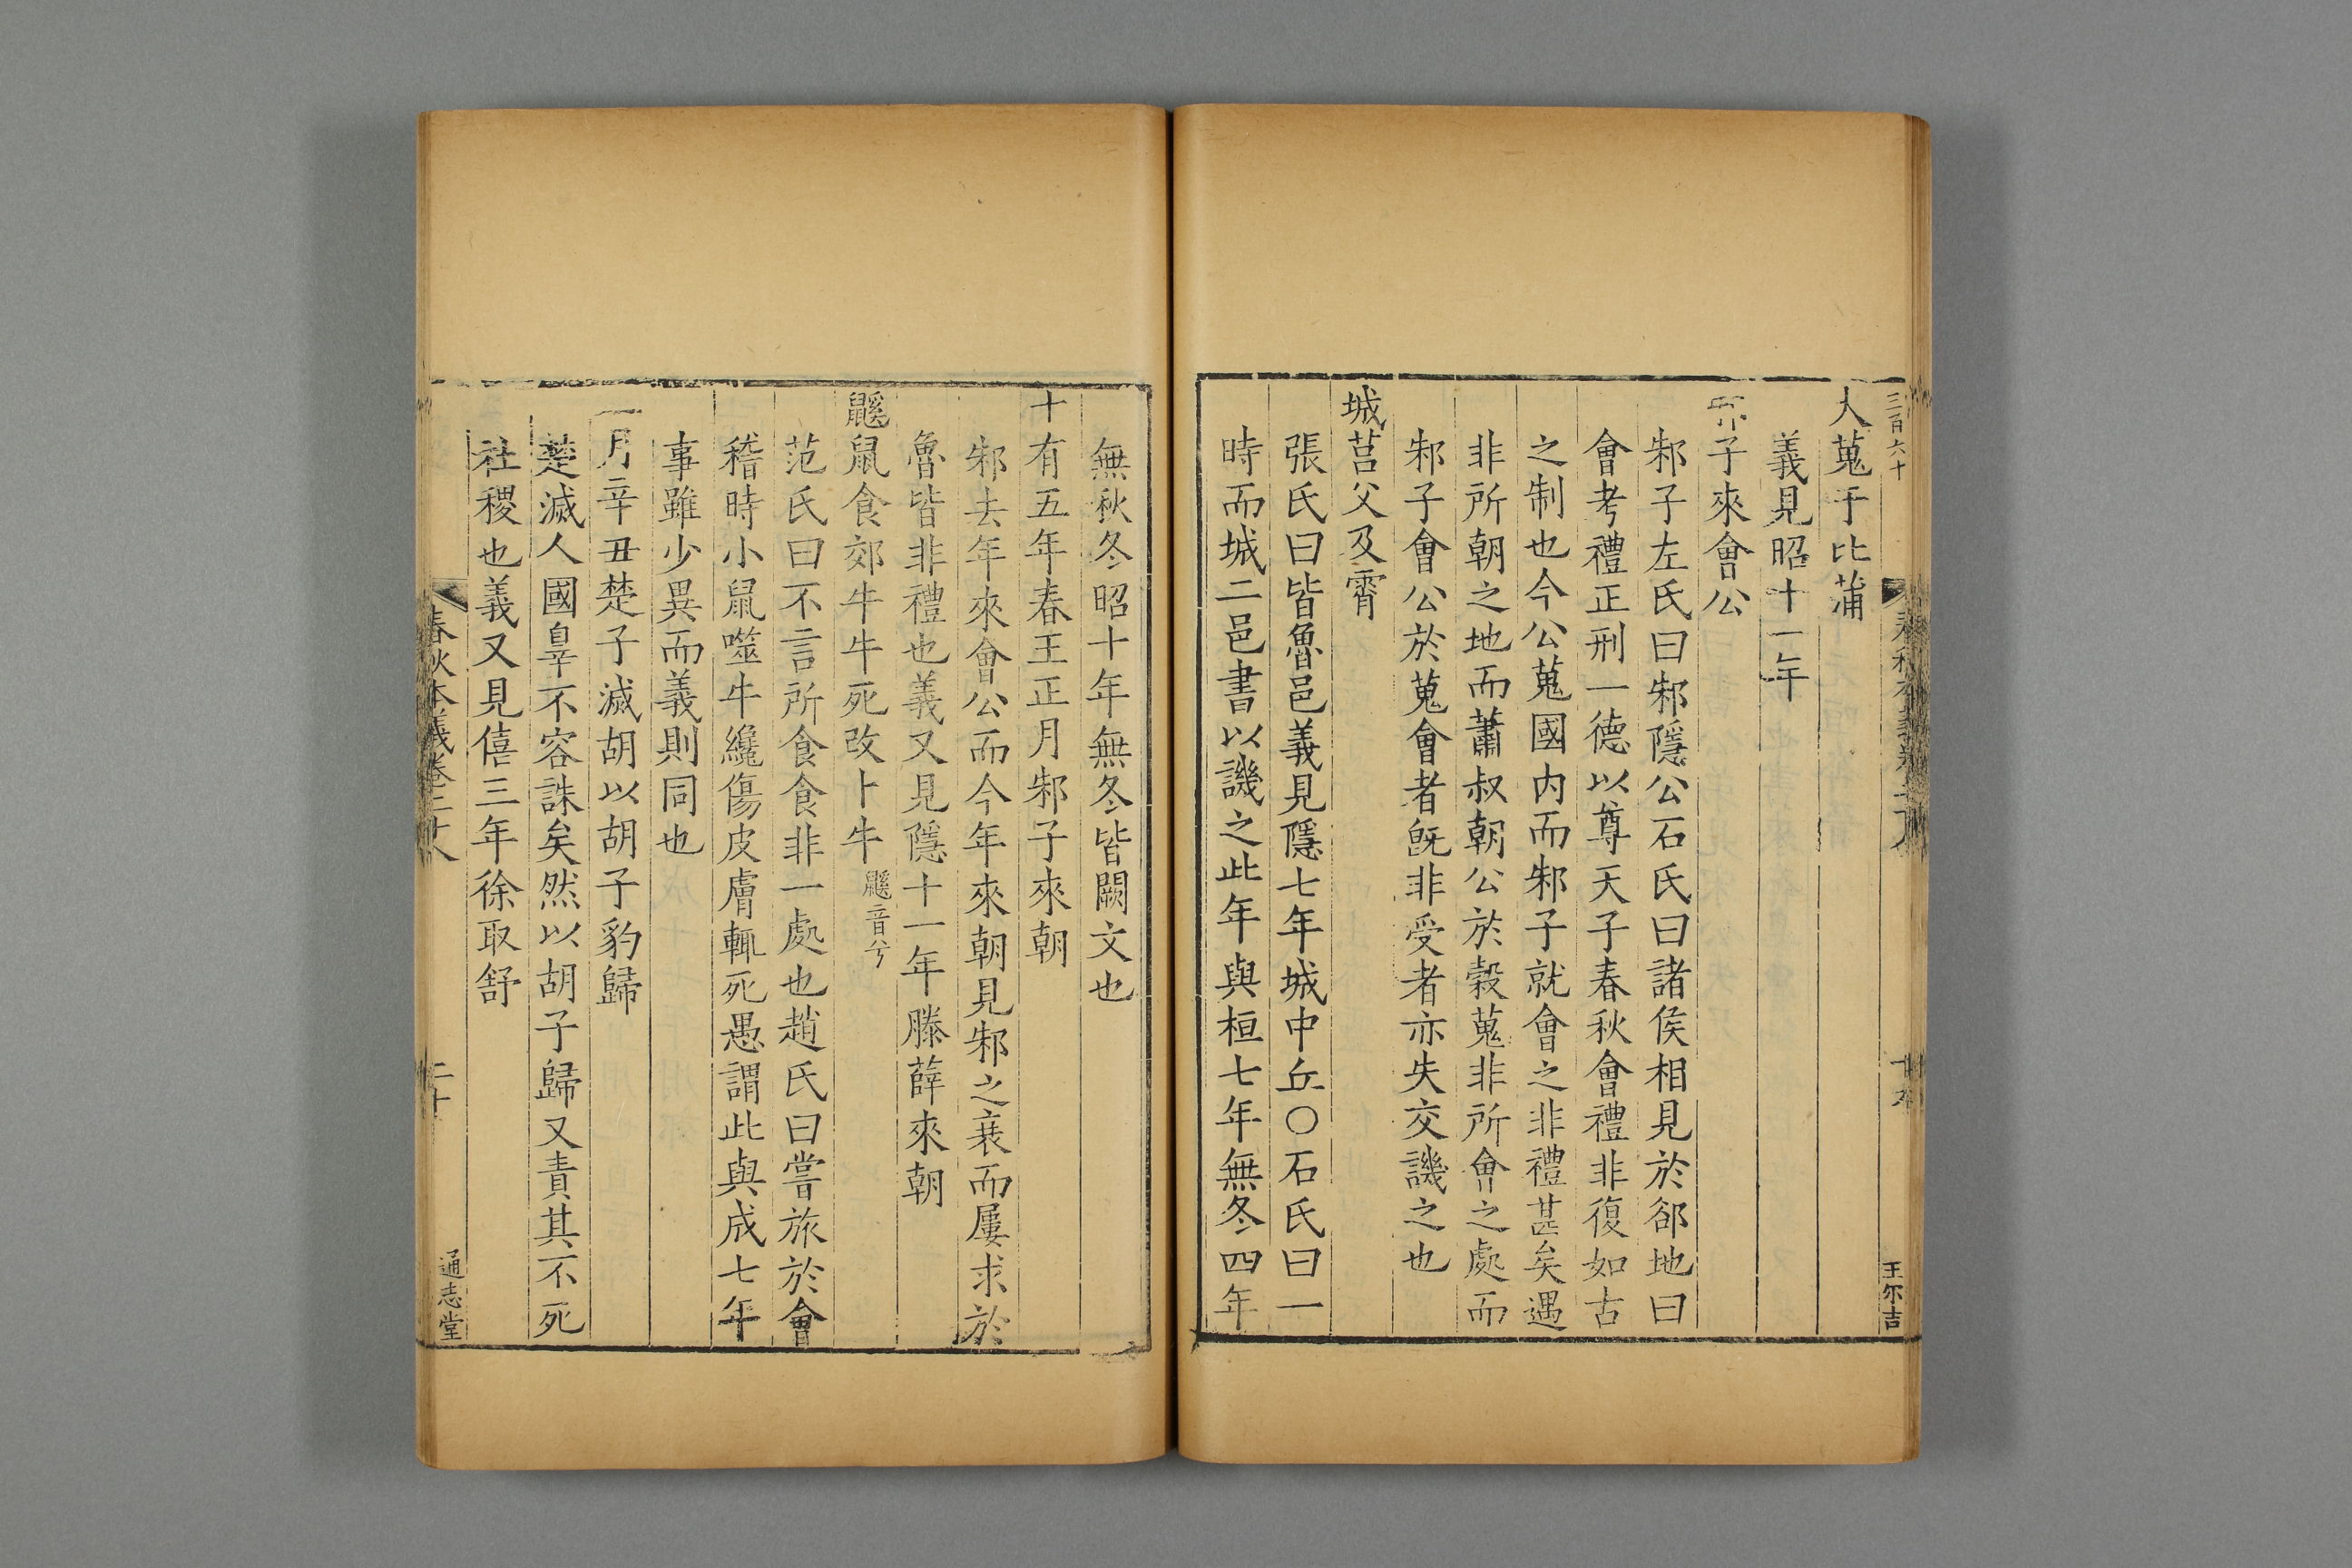 三百六十
春秋本義卷二十八
王尓吉
人蒐于比蒲
義見昭十一年
子來會公
邾子左氏曰邾隱公石氏曰諸侯相見於郤地曰
會考禮正刑一德以尊天子春秋會禮非復如古
之制也今公蒐國内而邾子就會之非禮甚矣遇
非所朝之地而蕭叔朝公於穀蒐非所會之處而
邾子會公於蒐會者旣非受者亦失交譏之也
城莒父及霄
張氏曰皆魯邑義見隱七年城中丘○石氏曰一
時而城二邑書以譏之此年與桓七年無冬四年
無秋冬昭十年無冬皆闕文也
十有五年春王正月邾子來朝
邾去年來會公而今年來朝見邾之衰而屢求於
魯皆非禮也義又見隱十一年滕薛來朝
鼷鼠食郊牛牛死改卜牛鼷音兮
范氏曰不言所食食非一處也趙氏曰嘗旅於會
稽時小鼠噬牛纔傷皮膚輒死愚謂此與成七年
事雖少異而義則同也
二月辛丑楚子滅胡以胡子豹歸
楚滅人國辠不容誅矣然以胡子歸又責其不死
社稷也義又見僖三年徐取舒
春秋本義卷二十八
二十
通志堂